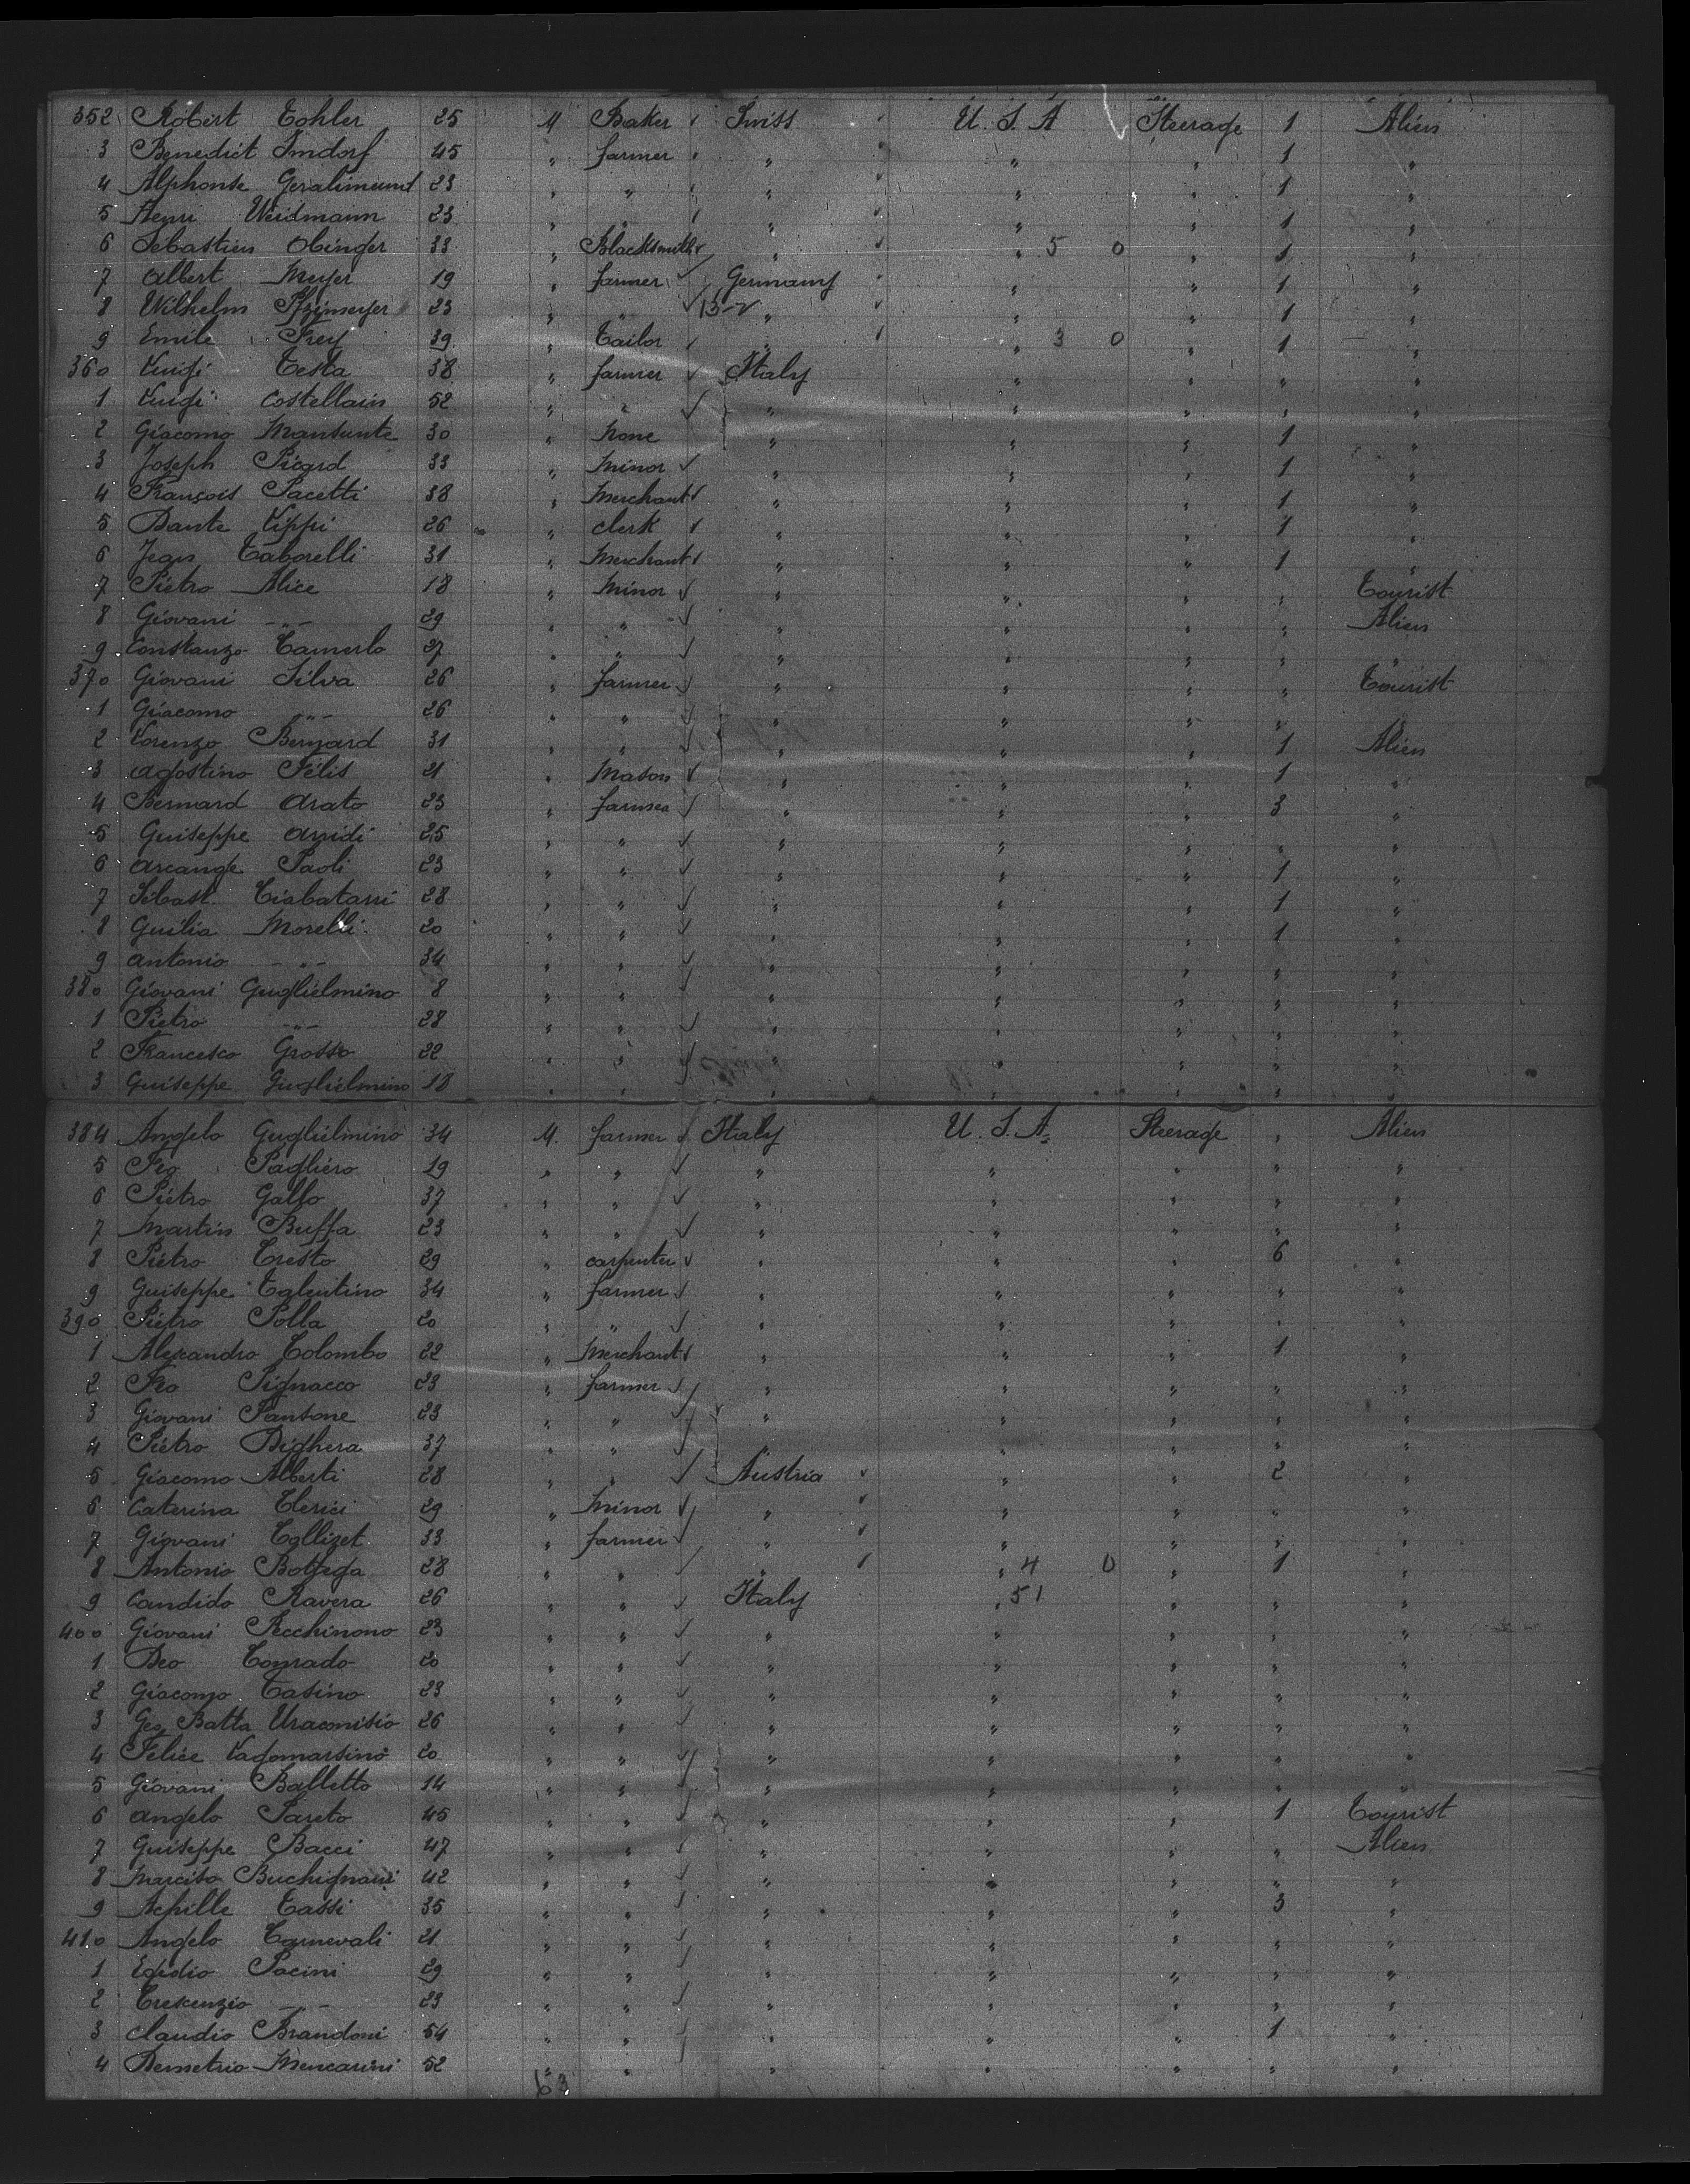 352 Robert Tohler 25 M Baker Swiss U.S.A Steerage 1 Alien
3 Benedict Imdorf 45 " farmer " " " 1 "
4 Alphonse 23 " " " " " 1 "
5 Henri Weidmann 23 " " " " " 1 "
6 Sebastien Obinger 33 " Blacksmith " " 5 0 " 1 "
7 Albert Meyer 19 " farmer Germany " " 1 "
8 Wilhelm 23 " " " " " 1 "
9 Emile Frey 39 " Tailor " " 3 0 " 1 "
360 Luigi Testa 38 " farmer Italy " " " "
1 Luigi Costellain 52 " " " " " " "
2 Giacomo Mansunte 30 " None " " " 1 "
3 Joseph Picard 33 " Minor " " " 1 "
4 François Pacetti 38 " Merchant " " " 1 "
5 Dante Lippi 26 " clerk " " " 1 "
6 Jean Taborelli 31 " Merchant " " " 1 "
7 Pietro Alice 18 " Minor " " " " Tourist
8 Giovani -"- 29 " " " " " " Alien
9 Constanzo Camerlo 27 " " " " " " "
370 Giovani Silva 26 " farmer " " " " Tourist
1 Giacomo -"- 26 " " " " " "
2 Lorenzo Bernard 31 " " " " " 1 Alien
3 Agostino Félis 21 " Mason " " " 1 "
4 Bernard Arato 23 " farmer " " " 3 "
5 Guiseppe 25 " " " " " " "
6 Arcange Paoli 23 " " " " " 1 "
7 Sébast. 28 " " " " " 1 "
8 Guilia Morelli 20 " " " " " 1 "
9 Antonio -"- 34 " " " " " " "
380 Giovani Guglielmino 8 " " " " " " "
1 Pietro -"- 28 " " " " " " "
2 Francesco Grosso 22 " " " " " " "
3 Guiseppe Guglielmino 18 " " " " " " "
384 Angelo Guglielmino 34 M. farmer Italy U.S.A. Steerage " Alien
5 Fco Pagliero 19 " " " " " " "
6 Pietro Gallo 37 " " " " " " "
7 Martin Buffa 23 " " " " " " "
8 Pietro Cresto 29 " carpenter " " " 6 "
9 Guiseppe Talentino 34 " farmer " " " " "
390 Pietro Polla 20 " " " " " " "
1 Alexandro Colombo 22 " Merchant " " " 1 "
2 Fco Pignacco 23 " farmer " " " " "
3 Giovani Santone 23 " " " " " " "
4 Pietro Dighera 37 " " " " " " "
5 Giacomo Alberti 28 " " Austria " " 2 "
6 Caterina Clerici 29 " Minor " " " " "
7 Giovani Collizet 33 " farmer " " " " "
8 Antonio Bottega 28 " " " " 4 0 " 1 "
9 Candido Ravera 26 " " Italy " 51 " " "
400 Giovani Pecchinono 23 " " " " " " "
1 Deo Conrado 20 " " " " " " "
2 Giacomo Casino 23 " " " " " " "
3 Geo Batta 26 " " " " " " "
4 Felice Lagomarsino 20 " " " " " " "
5 Giovani Balletto 14 " " " " " " "
6 Angelo Pareto 45 " " " " " 1 Tourist
7 Guiseppe Bacci 47 " " " " " " Alien
8 Narciso Buchignani 42 " " " " " " "
9 Achille Tassi 35 " " " " " 3 "
410 Angelo Carnevali 21 " " " " " " "
1 Egidio Pacini 29 " " " " " " "
2 Crescenzio -"- 23 " " " " " " "
3 Claudio Brandoni 54 " " " " " 1 "
4 Demetrio Mencarini 52 " " " " " " "
63